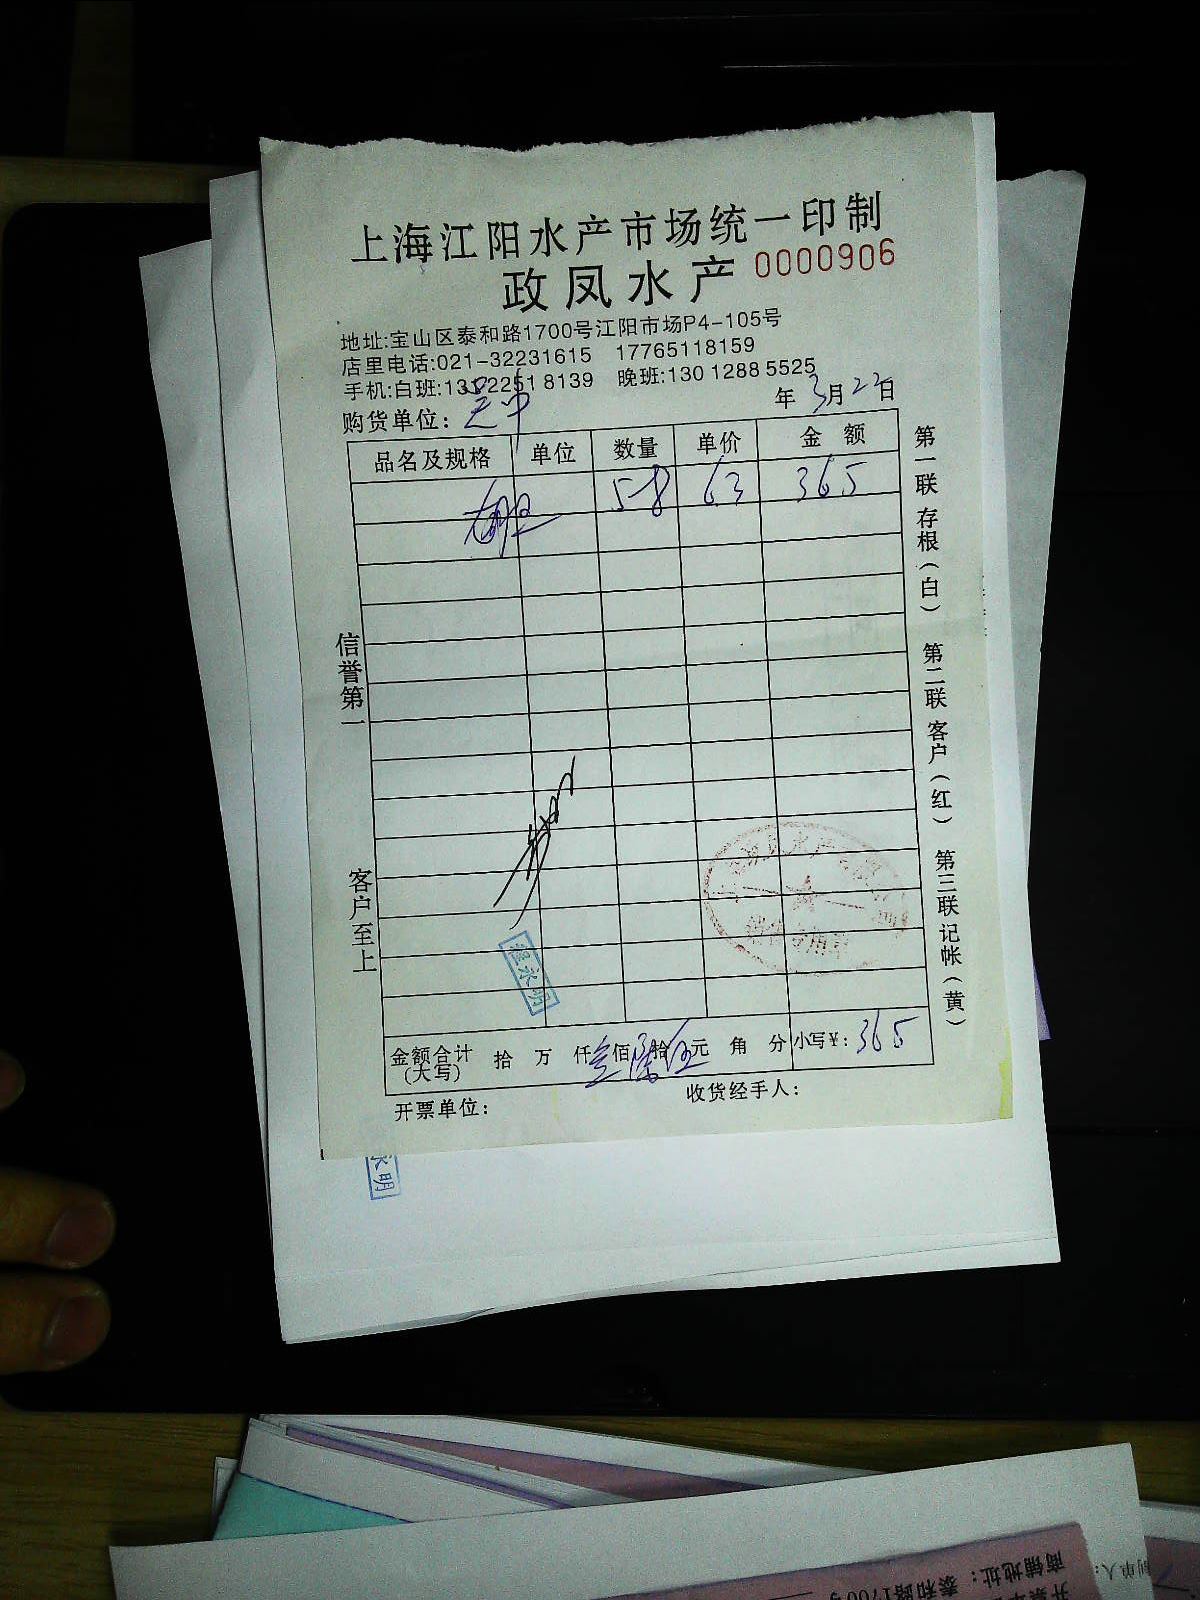 上海江阳水产市场统一印制
政凤水产 0000906
地址:宝山区泰和路1700号江阳市场P4-105号
店里电话:021-32231615 17765118159
手机:白班:13122251 8139 晚班:130 1288 5525
购货单位: 年 3月22日
品名及规格 单位 数量 单价 金额
58 63 365
信誉第一
客户至上
第一联存根(白) 第二联客户(红) 第三联记帐(黄)
程永明
金额合计(大写) 拾 万 仟叁佰陆拾伍元 角 分 小写¥: 365
开票单位: 收货经手人:
永明
商铺地址: 泰和路1700号